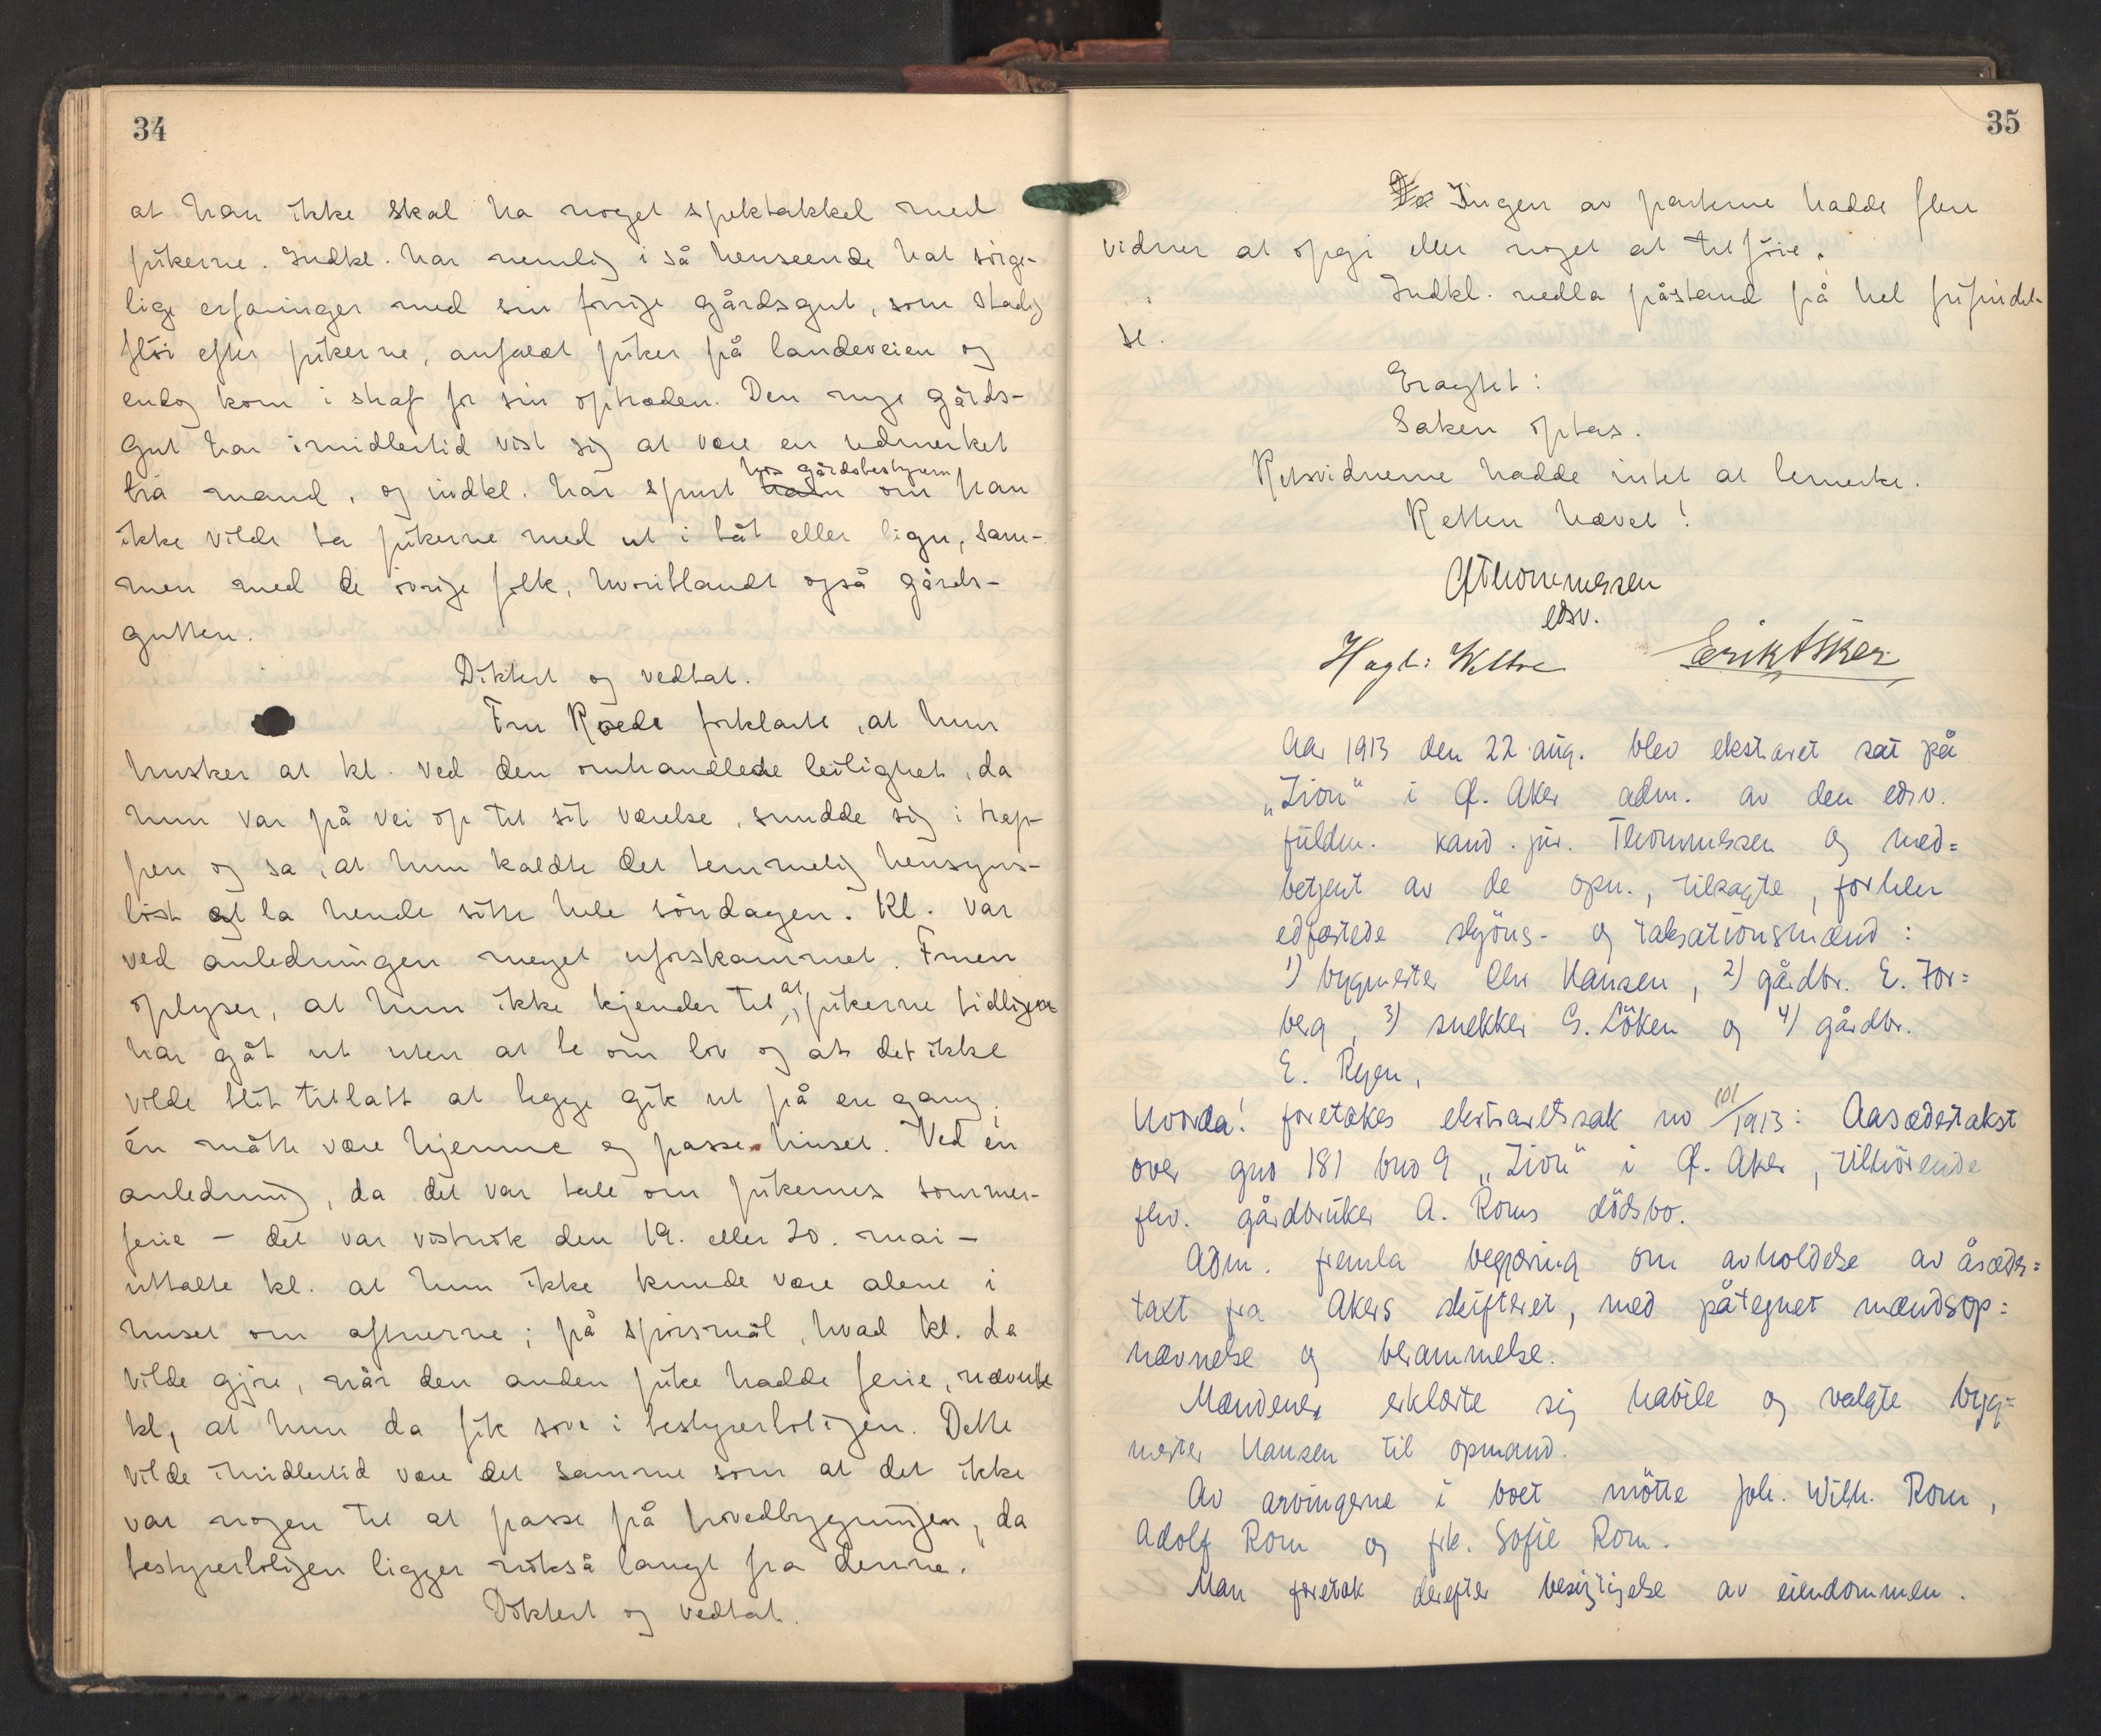 34
at han ikke skal ha noget spektakkel med
pikerne. Indkl. har nemlig i så henseende hat sörge-
lige erfaringer med sin forrige gårdsgut, som stadig
flöi efter pikerne, anfaldt piker på landeveien og
endog kom i straf for sin optræden. Den nye gårds-
gut har imidlertid vist sig at være en udmerket
bra mand, og indkl. har spurt hos gårdsbestyreren om han
ikke vilde ta pikerne med ut i båt eller lign, sam-
men med de övrige folk, hvoriblandt også gårds-
gutten.
Diktert og vedtat.
Fru Roede forklarte, at hun
husker at kl. ved den omhandlede leilighet, da
hun var på vei op til sit værelse, snudde sig i trap-
pen og sa, at hun kaldte det temmelig hensyns-
löst at la hende sitte hele söndagen. Kl. var
ved anledningen meget uforskammet. Fruen
oplyser, at hun ikke kjender til at pikerne tidligere
har gåt ut uten at be om lov og at det ikke
vilde blit tillatt at begge gik ut på en gang;
én måtte være hjemme og passe huset. Ved én
anledning, da det var tale om pikernes sommer-
ferie – det var vistnok den 19. eller 20. mai –
uttalte kl. at hun ikke kunde være alene i
huset om aftnerne; på spörsmål, hvad kl. da
vilde gjöre, når den anden pike hadde ferie, nævnte
kl, at hun da fik sove i bestyrerboligen. Dette
vilde imidlertid være det samme som at det ikke
var nogen til at passe på hovedbygningen, da
bestyrerboligen ligger nokså langt fra denne.
Diktert og vedtat.
35
De Ingen av parterne hadde flere
vidner at opgi eller noget at tilföie.
Indkl. nedla påstand på hel frifindel-
se.
Eragtet:
Saken optas.
Retsvidnerne hadde intet at bemerke.
Retten hævet!
Thommessen
edsv.
Hagb: Erik Aker
Aar 1913 den 22 aug. blev ekstraret sat på
„Zion" i Ø. Aker adm. av den edsv.
fuldm. kand. jur. Thommessen og med=
betjent av de opn., tilsagte, forhen
edfæstede skjöns- og taksationsmænd:
1) bygmester Chr Hansen, 2) gårdbr. E. Tor=
berg, 3) snekker G. Löken og 4) gårdbr.
E. Ryen,
hvorda! foretokes ekstraretssak no 101/1913: Aasædestakst
over gno 181 bno 9 „Zion" i Ø. Aker, tilhörende
fhv. gårdbruker A. Roms dödsbo.
Adm. fremla begjæring om avholdelse av åsædes=
taxt fra Akers skifteret, med påtegnet mændsop=
nævnelse og berammelse.
Mændene erklærte sig habile og valgte byg=
mester Hansen til opmand.
Av arvingerne i boet mötte Joh. Wilh. Rom,
Adolf Rom og frk. Sofie Rom.
Man foretok derefter besigtigelse av eiendommen.